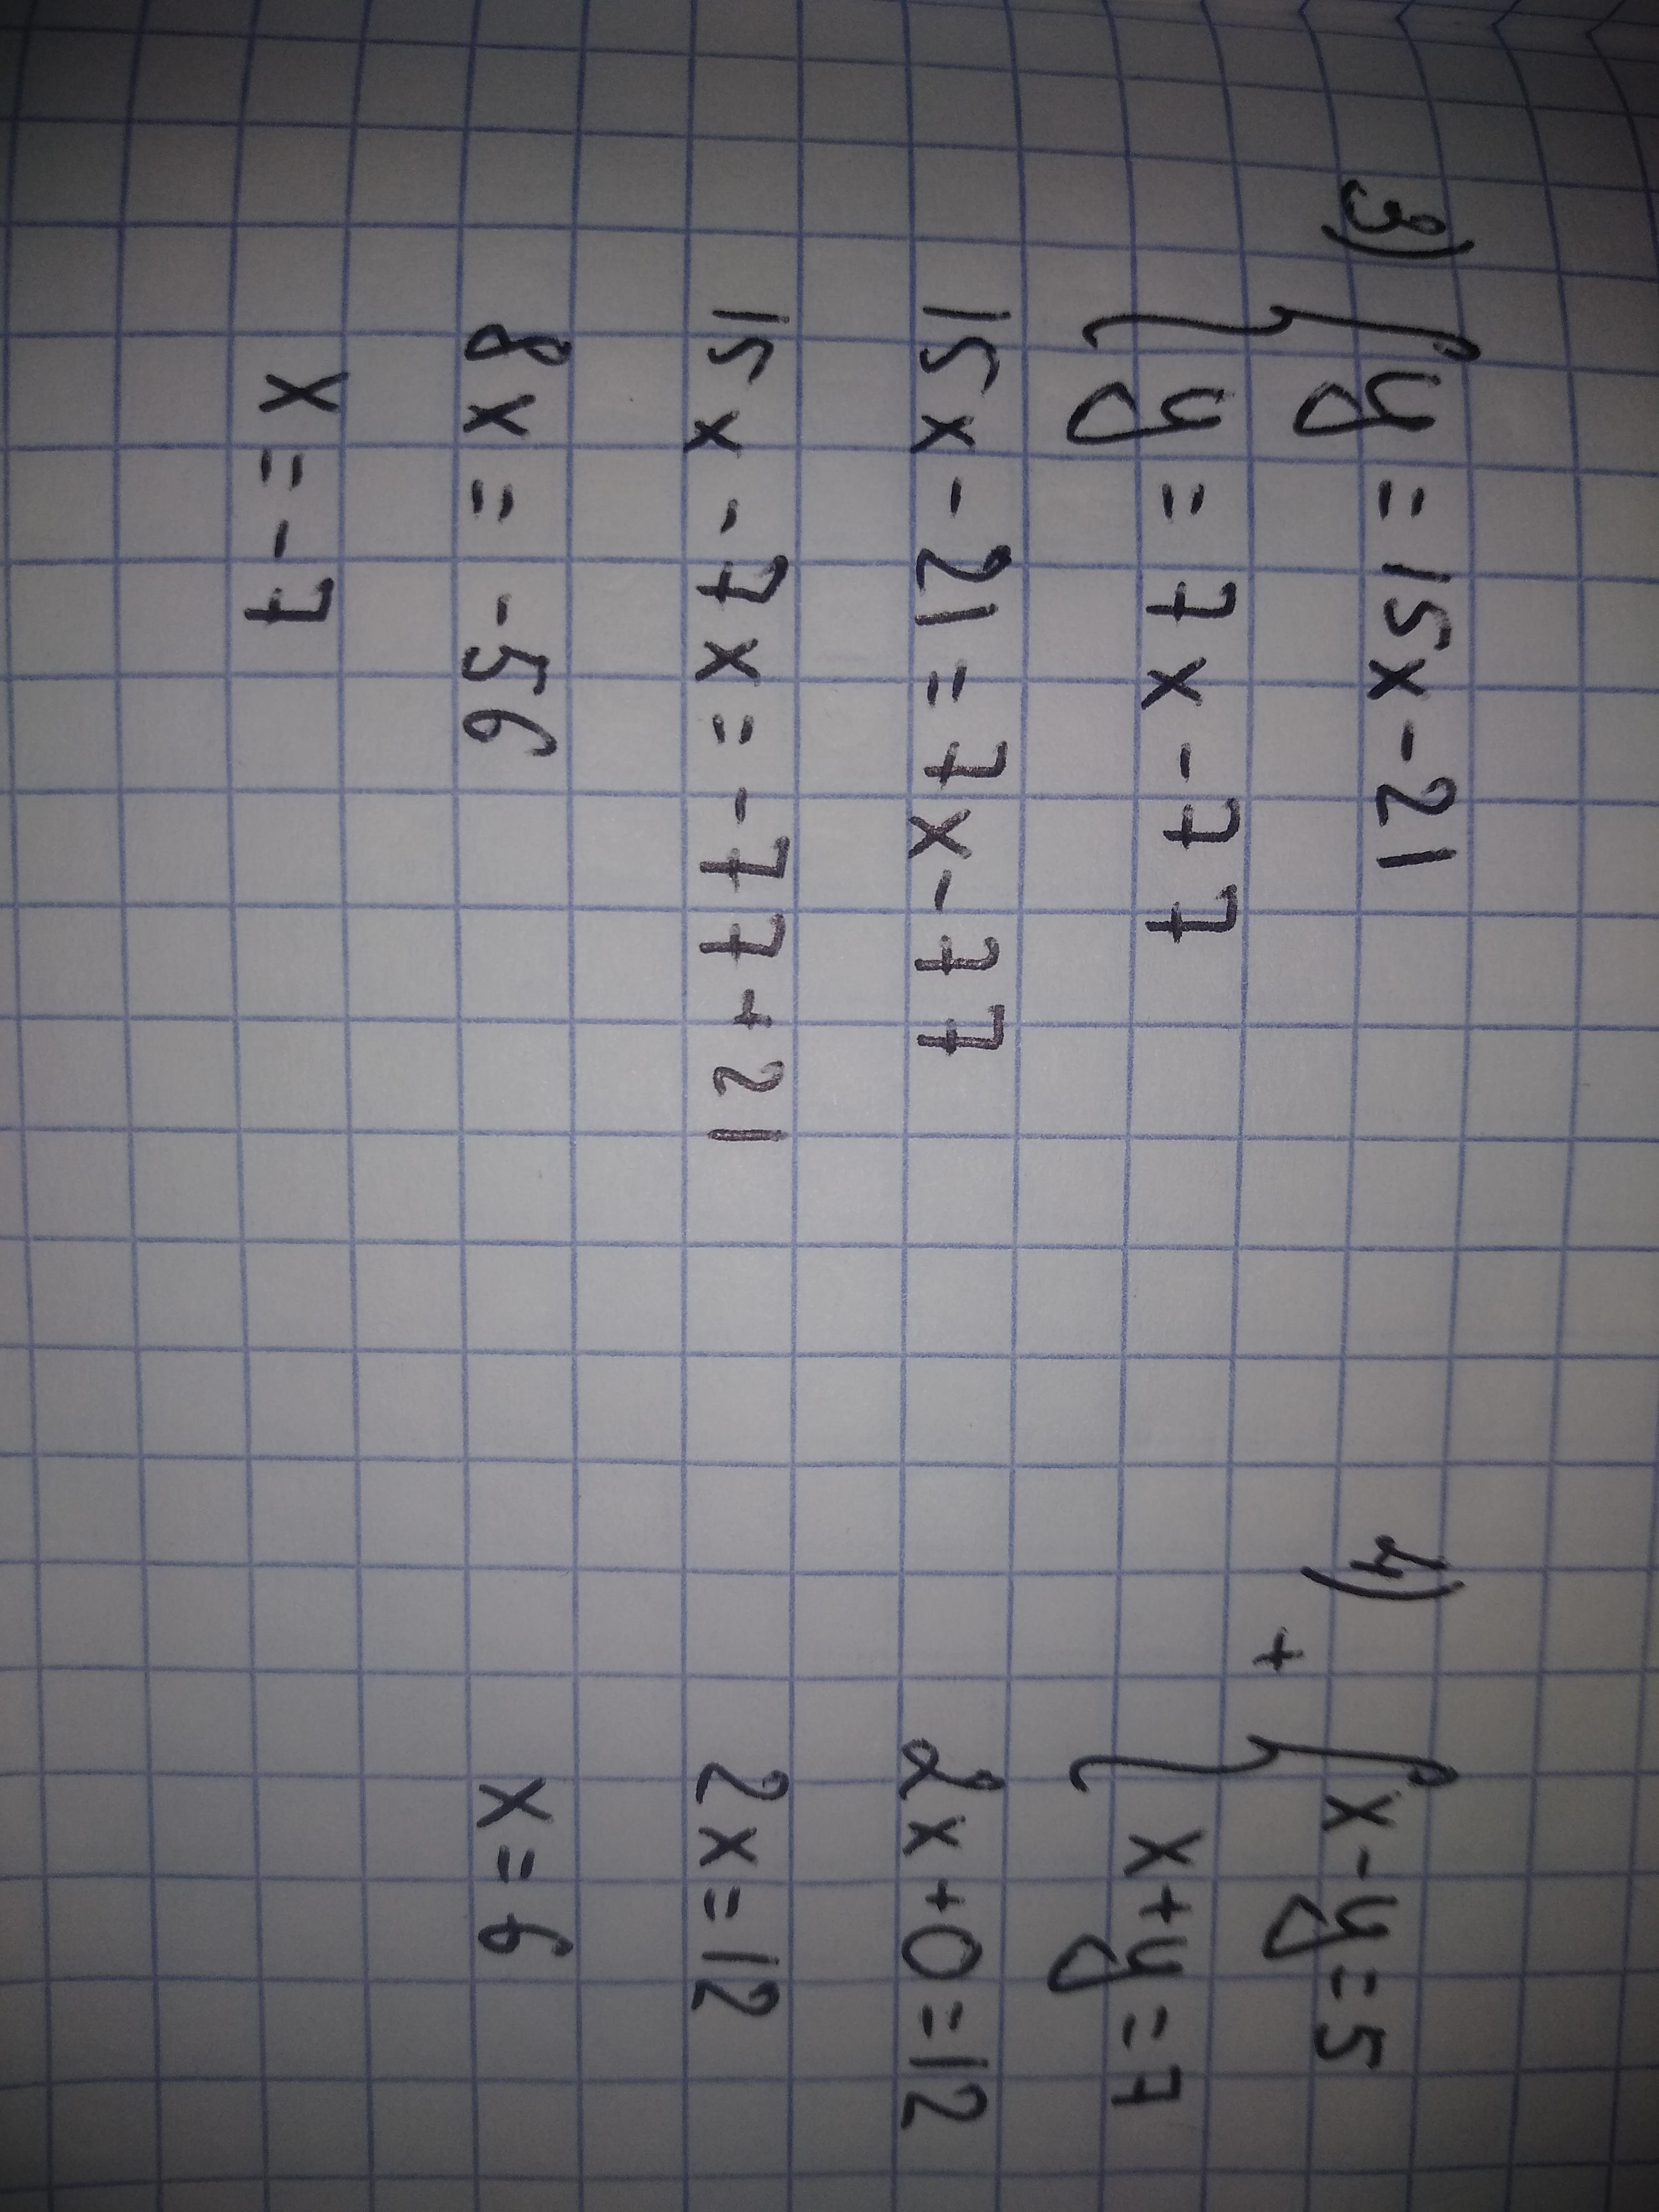 3) { y = 15x - 21
y = 7x - 77
15x - 21 = 7x - 77
15x - 7x = - 77 + 21
8x = - 56
x = - 7
4) + { x - y = 5
x + y = 7
2x + 0 = 12
2x = 12
x = 6